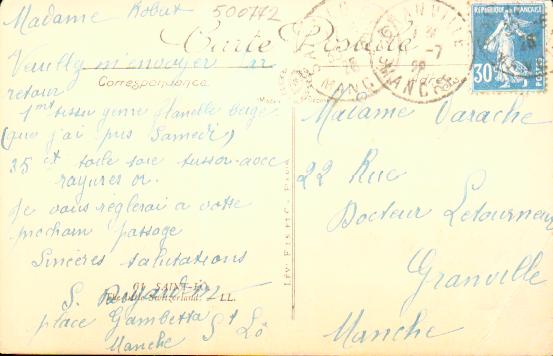 Madame Robut
500772
Carte Postale
Veuillez m'envoyer par
retour
Correspondance
1 mt tissu genre flanelle beige
(que j'ai pris Samedi)
35 ct toile soie tussor avec
rayures or.
Je vous règlerai à votre
prochain passage
Sincères salutations
91 SAINT-LO
LL.
place Gambetta
Manche St Lô
GRANVILLE
MANCHE
RÉPUBLIQUE FRANÇAISE
30
POSTES
Madame Varache
22 Rue
Docteur Letourneur
Granville
Manche